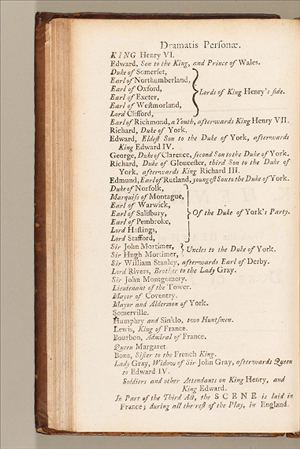 Dramatis Personæ.
KING Henry VI.
Edward, Son to the King, and Prince of Wales.
Duke of Somerset,
Earl of Northumberland,
Earl of Oxford,
Lords of King Henry's side.
Earl of Exeter,
Earl of Westmorland,
Lord Clifford,
Earl of Richmond, a Youth, afterwards King Henry VII.
Richard, Duke of York.
Edward, Eldest Son to the Duke of York, afterwards
King Edward IV.
George, Duke of Clarence, second Son to the Duke of York.
Richard, Duke of Gloucester, third Son to the Duke of
York, afterwards King Richard III.
Edmund, Earl of Rutland, youngest Son to the Duke of York.
Duke of Norfolk,
Marquiss of Montague,
Earl of Warwick,
Earl of Salisbury,
Of the Duke of York's Party.
Earl of Pembroke,
Lord Hastings,
Lord Stafford,
Sir John Mortimer,
Uncles to the Duke of York.
Sir Hugh Mortimer,
Sir William Stanley, afterwards Earl of Derby.
Lord Rivers, Brother to the Lady Gray.
Sir John Montgomery.
Lieutenant of the Tower.
Mayor of Coventry.
Mayor and Aldermen of York.
Somerville.
Humphry and Sinklo, two Huntsmen.
Lewis, King of France.
Bourbon, Admiral of France.
Queen Margaret
Bona, Sister to the French King.
Lady Gray, Widow of Sir John Gray, afterwards Queen
to Edward IV.
Soldiers and other Attendants on King Henry, and
King Edward.
In Part of the Third Act, the SCENE is laid in
France; during all the rest of the Play, in England.